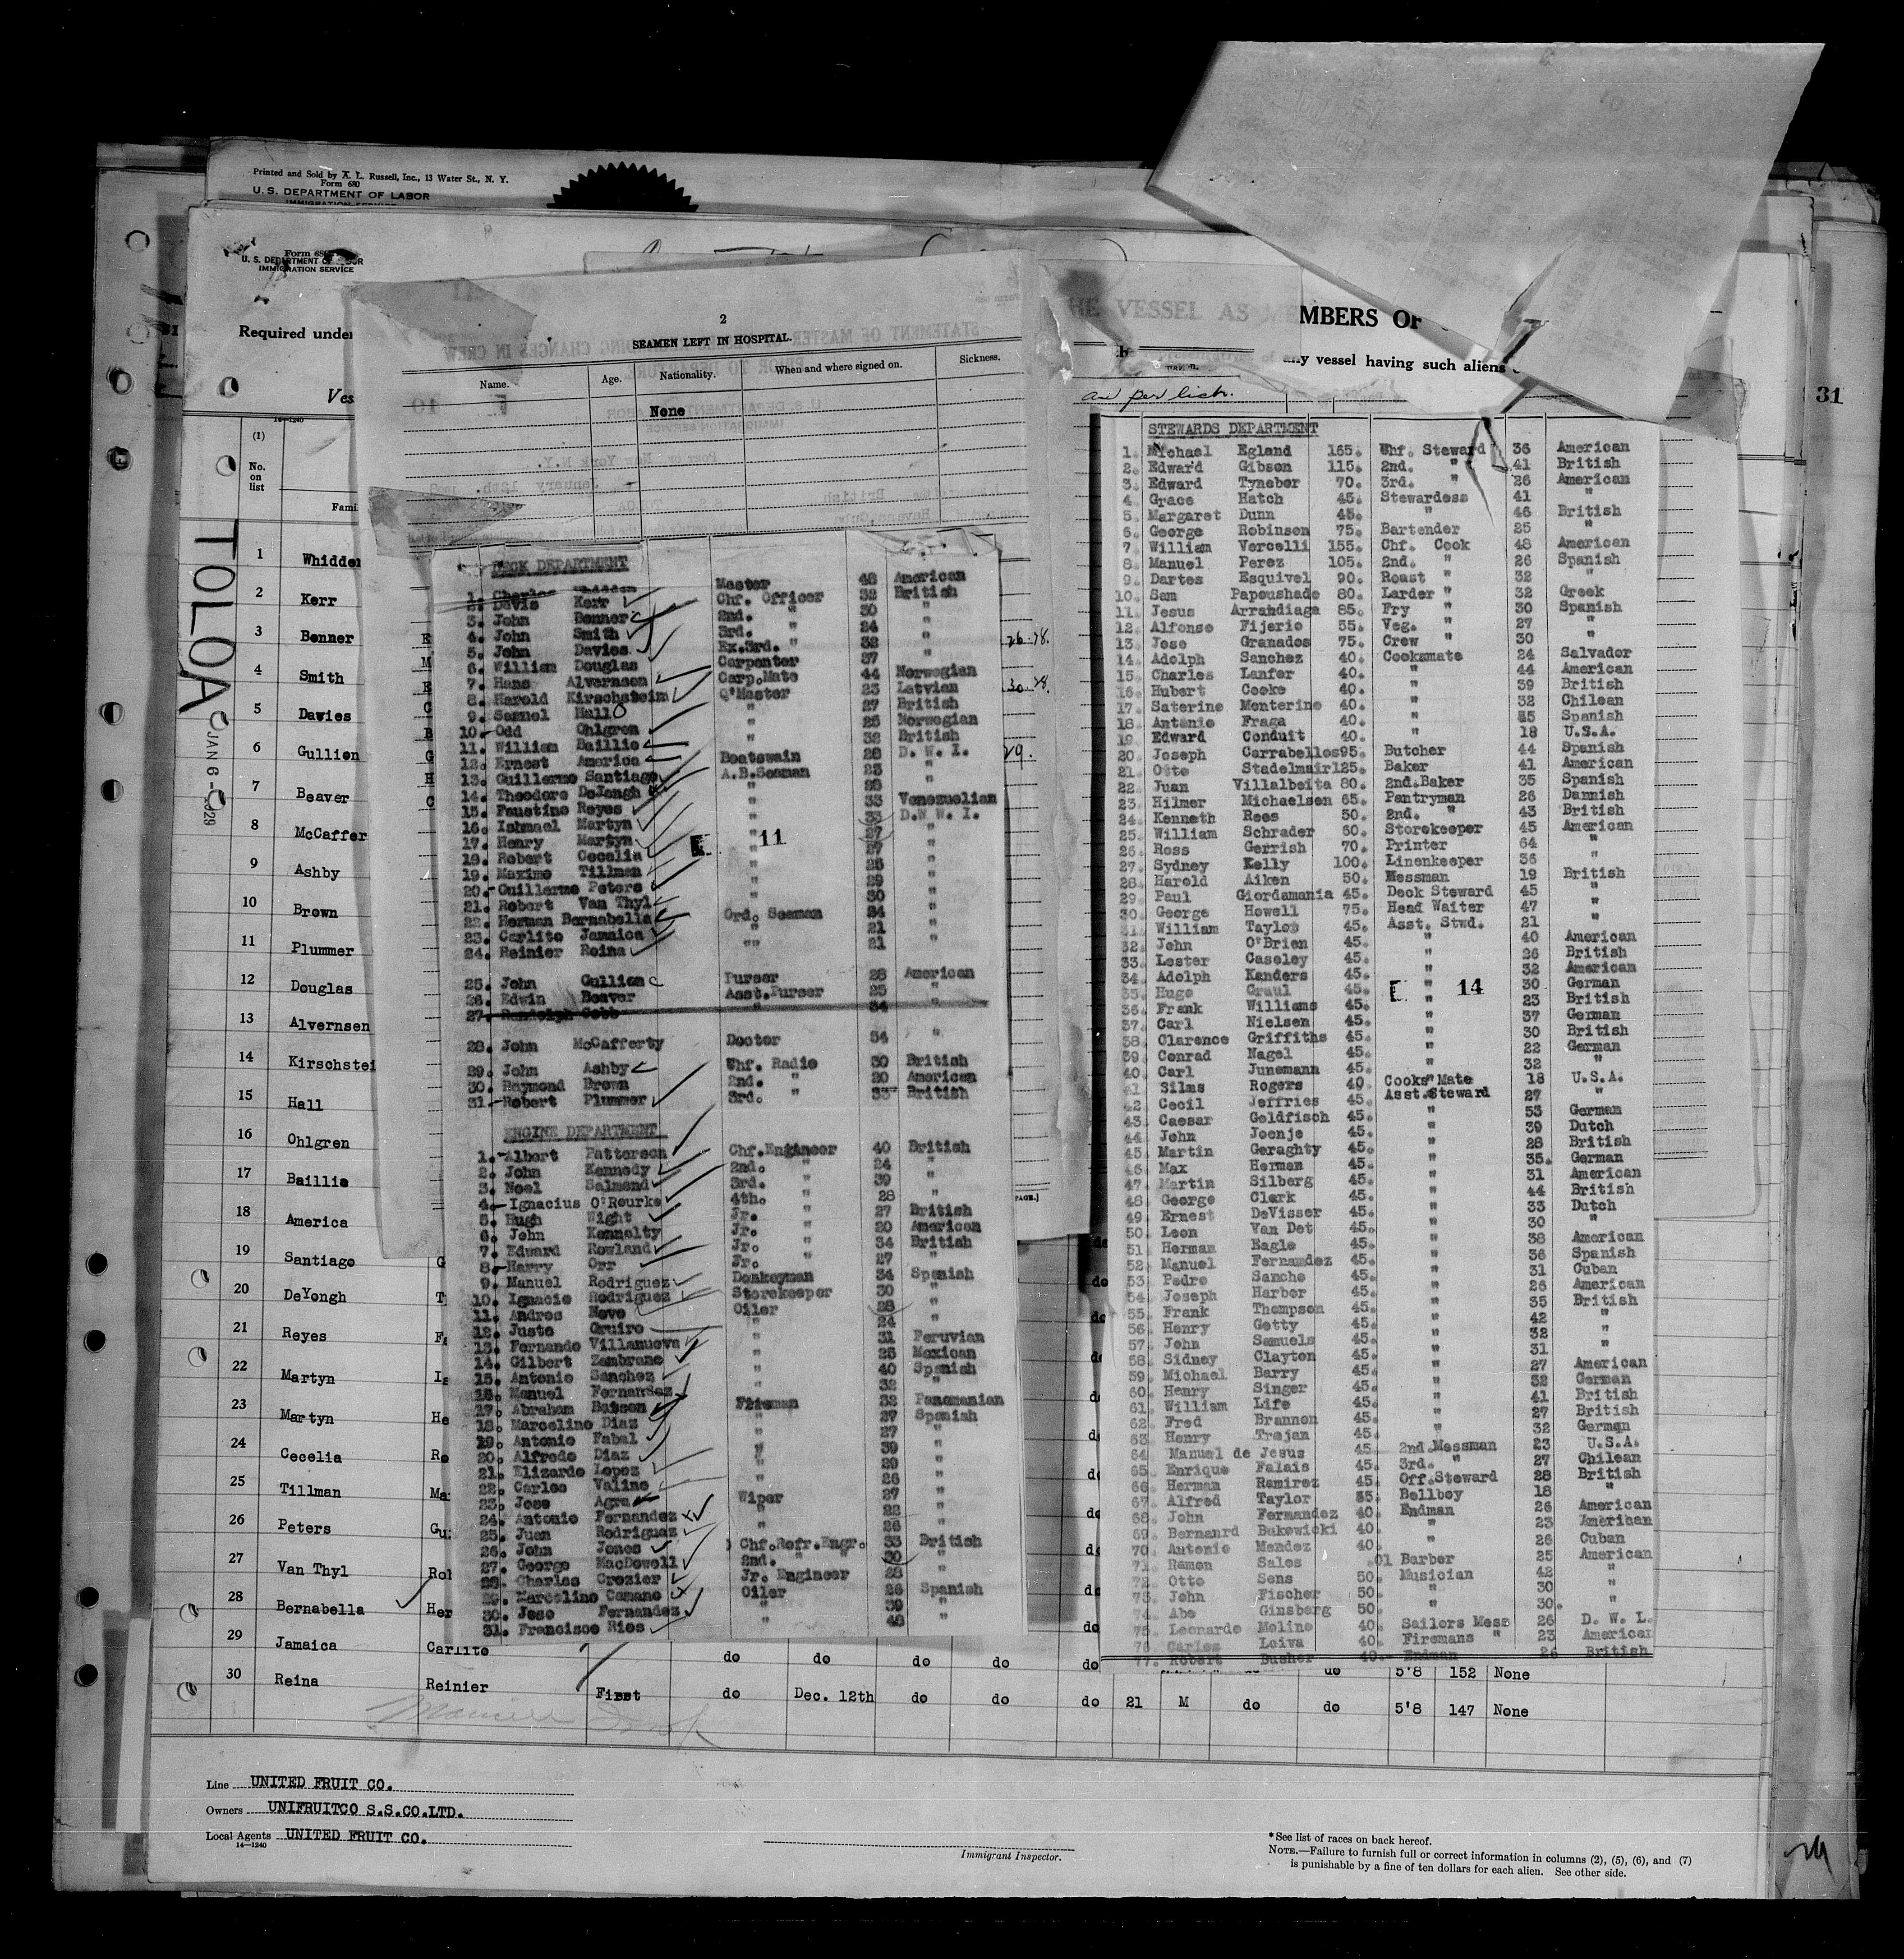 Printed and Sold by A. L. Russell, Inc., 13 Water St., N. Y.
Form 680
U. S. DEPARTMENT OF LABOR
IMMIGRATION SERVICE
Form 680
U. S. DEPARTMENT OF LABOR
IMMIGRATION SERVICE
Required under
Ves
14-1240
(1)
No.
on
list
Fami
TOLOA
JAN 6 - 1929
1 Whidden
2 Kerr
3 Benner E
4 Smith M
5 Davies E
6 Gullien G
7 Beaver H
8 McCaffer
9 Ashby
10 Brown
11 Plummer
12 Douglas
13 Alvernsen
14 Kirschstei
15 Hall
16 Ohlgren
17 Baillie
18 America
19 Santiago G
20 DeYongh T
21 Reyes
22 Martyn
23 Martyn He
24 Cecelia Ro
25 Tillman Ma
26 Peters Gu
27 Van Thyl Rol
28 Bernabella Her
29 Jamaica Carlito do do do do do
30 Reina Reinier First do Dec. 12th do do do 21 M do do 5'8 147 None
do 5'8 152 None
2
SEAMEN LEFT IN HOSPITAL.
Name. Age. Nationality. When and where signed on. Sickness.
None
DECK DEPARTMENT
1. Charles Whidden Master 48 American
2. Davis Kerr Chf. Officer 32 British
3. John Benner 2nd. " 30 "
4. John Smith 3rd. " 24 "
5. John Davies Ex.3rd. " 32 "
6. William Douglas Carpenter 37 "
7. Hans Alvernsen Carp.Mate 44 Norwegian
8. Harold Kirschstein Q'Master 23 Latvian
9. Samuel Hall " 27 British
10. Odd Ohlgren " 25 Norwegian
11. William Baillie " 32 British
12. Ernest America Boatswain 28 D. W. I.
13. Guillermo Santiago A.B.Seaman 23 "
14. Theodore DeJongh "
15. Faustino Reyes " 33 Venezuelian
16. Ishmael Martyn " 33 D.W W. I.
17. Henry Martyn " 27 "
18. Robert Cecelia " 27 "
19. Maximo Tillman " 25 "
20. Guillermo Peters " 29 "
21. Robert Van Thyl " 30 "
22. Herman Bernabella Ord. Seaman 24 "
23. Carlito Jamaica " 21 "
24. Reinier Reina " 21 "
E 11
25. John Gullien Purser 28 American
26. Edwin Beaver Asst.Purser 25 "
27. Randolph Cobb " 34
28. John McCafferty Doctor 54 "
29. John Ashby Whf. Radio 30 British
30. Raymond Brown 2nd. " 20 American
31. Robert Plummer 3rd. " 33 British
ENGINE DEPARTMENT
1. Albert Patterson Chf.Engineer 40 British
2. John Kennedy 2nd. " 24 "
3. Noel Salmond 3rd. " 39 "
4. Ignacius O'Rourke 4th. " 28 "
5. Hugh Wight Jr. " 27 British
6. John Kennalty Jr. " 20 American
7. Edward Rowland Jr. " 34 British
8. Harry Orr Jr. " 27 "
9. Manuel Rodriguez Donkeyman 34 Spanish
10. Ignacio Rodriguez Storekeeper 30 "
11. Andres Neve Oiler 28 "
12. Juste Gruiro " 24 "
13. Fernando Villanueva " 31 Peruvian
14. Gilbert Zambrano " 25 Mexican
15. Antonio Sanchez " 40 Spanish
16. Manuel Fernandez " 32 "
17. Abraham Batson Fireman 32 Panamanian
18. Marcelino Diaz " 27 Spanish
19. Antonio Fabal " 27 "
20. Alfredo Diaz " 39 "
21. Elizardo Lopez " 29 "
22. Carlos Valino " 26 "
23. Jose Agra Wiper 27 "
24. Antonio Fernandez " 22 "
25. Juan Rodriguez " 26 "
26. John Jones Chf.Refr.Engr. 33 British
27. George MacDowell 2nd. " " 30 "
28. Charles Crozier Jr. Engineer 28 "
29. Marcelino Camano Oiler 26 Spanish
30. Jose Fernandez " 39 "
31. Francisco Rios " 48 "
HE VESSEL AS MEMBERS OF
any vessel having such aliens
as per list.
31
STEWARDS DEPARTMENT
1. Michael Egland 165. Whf. Steward 36 American
2. Edward Gibson 115. 2nd. " 41 British
3. Edward Tyneber 70. 3rd. " 26 American
4. Grace Hatch 45. Stewardess 41 "
5. Margaret Dunn 45. " 46 British
6. George Robinson 75. Bartender 25 "
7. William Vercelli 155. Chf. Cook 48 American
8. Manuel Perez 105. 2nd. " 26 Spanish
9. Dartes Esquivel 90. Roast " 32 "
10. Sam Papoushade 80. Larder " 32 Greek
11. Jesus Arrandiaga 85. Fry " 30 Spanish
12. Alfonso Fijerio 55. Veg. " 27 "
13. Jose Granados 75. Crew " 30 "
14. Adolph Sanchez 40. Cooksmate 24 Salvador
15. Charles Lanfer 40. " 44 American
16. Hubert Cooke 40. " 39 British
17. Saterine Monterino 40. " 32 Chilean
18. Antonio Fraga 40. " 35 Spanish
19. Edward Conduit 40. " 18 U.S.A.
20. Joseph Carrabellos 95. Butcher 44 Spanish
21. Otto Stadelmair 125. Baker 41 American
22. Juan Villalbeita 80. 2nd.Baker 35 Spanish
23. Hilmer Michaelsen 65. Pantryman 26 Dannish
24. Kenneth Rees 50. 2nd. " 43 British
25. William Schrader 60. Storekeeper 45 American
26. Ross Gerrish 70. Printer 64 "
27. Sydney Kelly 100. Linenkeeper 36 "
28. Harold Aiken 50. Messman 19 British
29. Paul Giordamania 45. Deck Steward 45 "
30. George Howell 75. Head Waiter 47 "
31. William Taylor 45. Asst. Stwd. 21 "
32. John O'Brien 45. " 40 American
33. Lester Caseley 45. " 26 British
34. Adolph Kanders 45. " 32 American
35. Hugo Graul 45. " 30 German
36. Frank Williams 45. " 23 British
37. Carl Nielsen 45. " 37 German
38. Clarence Griffiths 45. " 30 British
39. Conrad Nagel 45. " 22 German
40. Carl Junemann 45. " 32 "
41. Silas Rogers 40. Cooks Mate 18 U.S.A.
42. Cecil Jeffries 45. Asst.Steward 27 "
43. Caesar Goldfisch 45. " 53 German
44. John Joenje 45. " 39 Dutch
45. Martin Geraghty 45. " 28 British
46. Max Herman 45. " 35. German
47. Martin Silberg 45. " 31 American
48. George Clark 45. " 44 British
49. Ernest DeVisser 45. " 33 Dutch
50. Leon Van Det 45. " 30 "
51. Herman Eagle 45. " 38 American
52. Manuel Fernandez 45. " 36 Spanish
53. Pedro Sancho 45. " 31 Cuban
54. Joseph Harbor 45. " 26 American
55. Frank Thompson 45. " 35 British
56. Henry Getty 45. " 42 "
57. John Samuels 45. " 32 "
58. Sidney Clayton 45. " 31 "
59. Michael Barry 45. " 27 American
60. Henry Singer 45. " 32 German
61. William Life 45. " 41 British
62. Fred Brannon 45. " 27 British
63. Henry Trojan 45. " 32 German
64. Manuel de Jesus 45. 2nd.Messman 23 U.S.A.
65. Enrique Falais 45. 3rd. " 27 Chilean
66. Herman Ramirez 45. Off.Steward 28 British
67. Alfred Taylor 35. Bellboy 18 "
68. John Fernandez 40. Endman 26 American
69. Bernanrd Bukowicki 40. " 23 American
70. Antonio Mendez 40. " 26 Cuban
71. Ramon Salos .01 Barber 25 American
72. Otto Sens 50. Musician 42 "
73. John Fischer 50. " 30 "
74. Abe Ginsberg 50. " 30. "
75. Leonardo Molino 40. Sailors Mess 26 D. W. I.
76. Carlos Leiva 40. Firemans " 23 American
77. Robert Busher 40. Endman 26 British
E 14
Line UNITED FRUIT CO.
Owners UNIFRUITCO S.S.CO.LTD.
Local Agents UNITED FRUIT CO.
14-1240
Immigrant Inspector.
*See list of races on back hereof.
NOTE.—Failure to furnish full or correct information in columns (2), (5), (6), and (7)
is punishable by a fine of ten dollars for each alien. See other side.